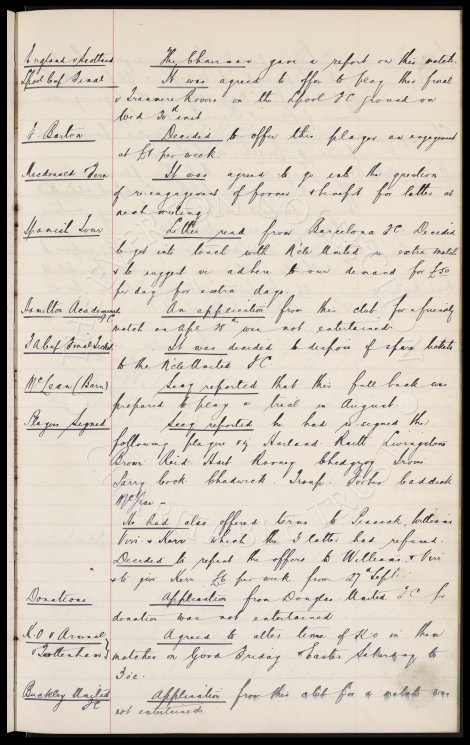 England v Scotland The Chairman gave a report on this match.
L'pool Cup Final It was agreed to offer to play this final
v Tranmere Rovers on the L'pool FC ground on
Wed 30th inst
J. Barton Decided to offer this player an engagement
at £1 per week.
Macdonald Fern It was agreed to go into the question
of re-engagement of former & benefit for latter at
next meeting
Spanish Tour Letter read from Barcelona FC Decided
to get into touch with N'cle United re extra match
& to suggest we adhere to our demand for £50
per day for extra days.
Hamilton Academical FC An application from this club for a friendly
match on Apl 18th was not entertained.
F A Cup Final Tickets It was decided to dispose of spare tickets
to the N'cle United FC
McLean (Barn) Secy reported that this full back was
prepared to play a trial in August.
Players Signed Secy reported he had re-signed the
following players viz Harland Raitt Livingstone
Brown Reid Hart Rooney Chedgzoy Irvine
Parry Cock Chadwick. Troup. Forbes Caddick
McGraw -
He had also offered terms to Peacock, Williams
Virr & Kerr which the 3 latter had refused.
Decided to repeat the offers to Williams & Virr
& to give Kerr £6 per week from 27th Sept.
Donations Application from Douglas United FC for
donation was not entertained.
K.O. v Arsenal Agreed to alter time of KO in these
& Tottenham matches on Good Friday & Easter Saturday to
3 o'c.
Buckley United FC Application from this club for a match was
not entertained